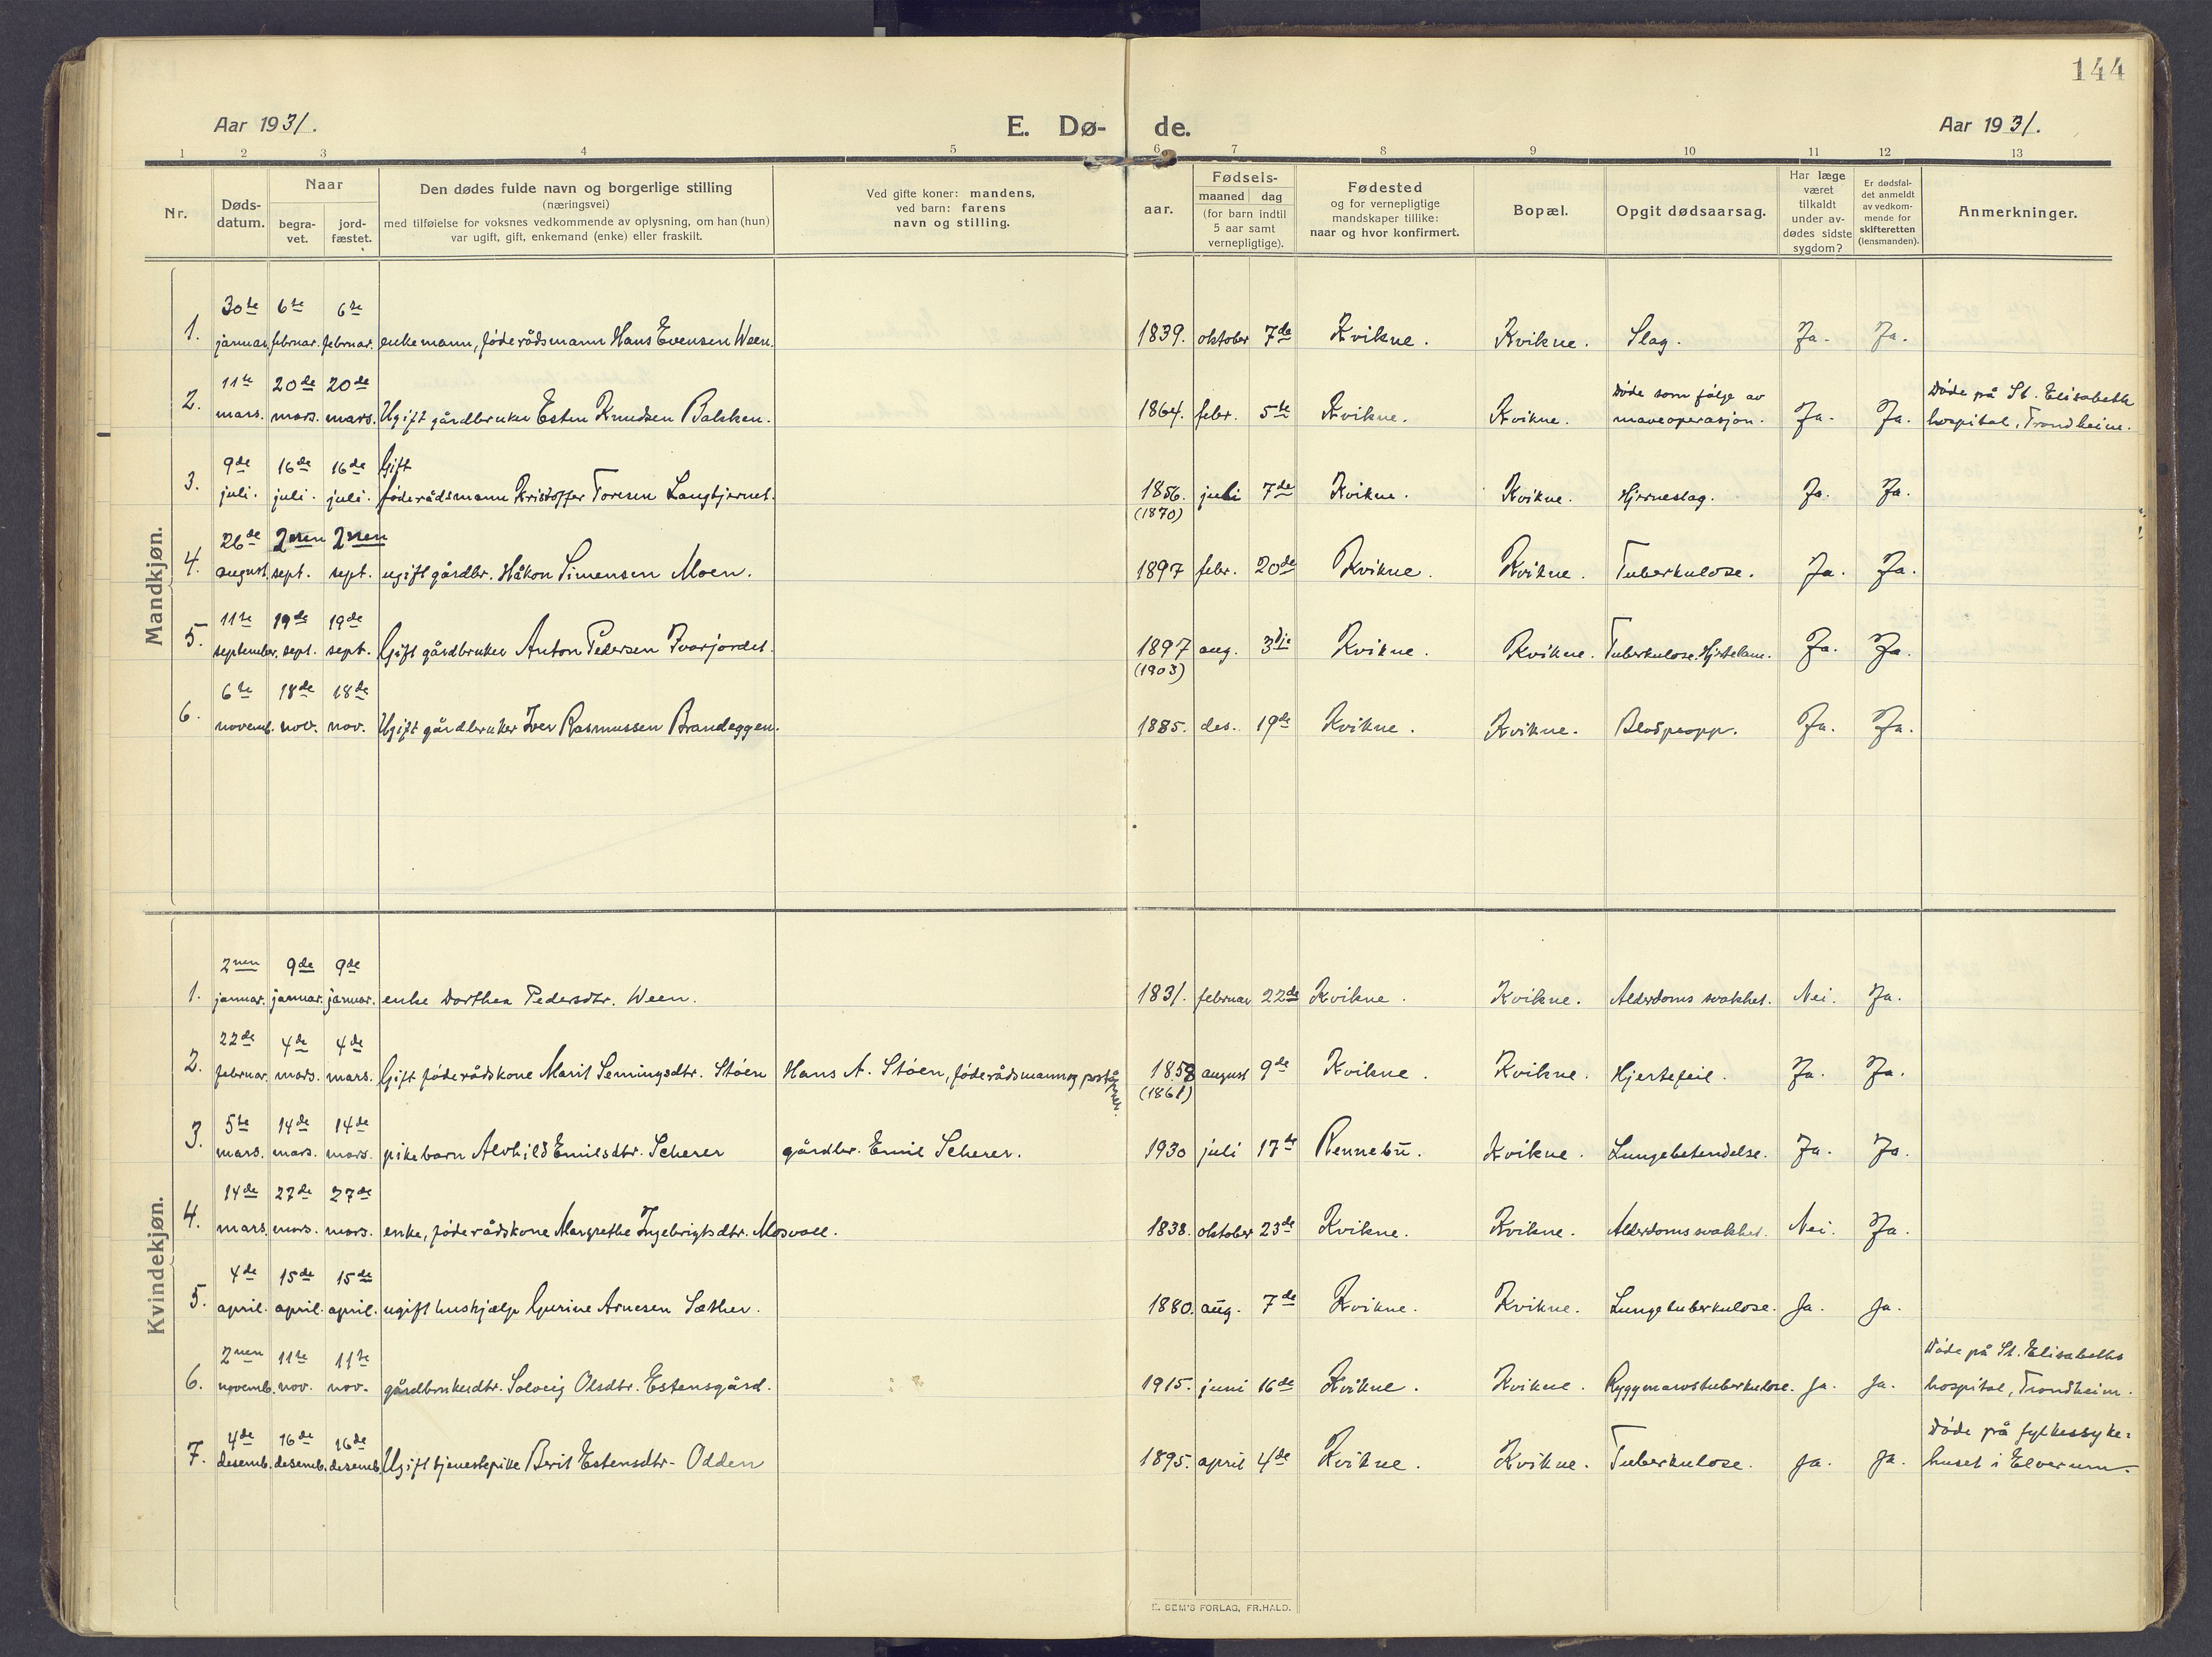 144
Aar 1931.
E. Dø-
de.
Aar 1931.
1 2 3 4 5 6 7 8 9 10 11 12 13
Nr.
Døds-
datum.
Naar
begra-
vet.
jord-
fæstet.
Den dødes fulde navn og borgerlige stilling
(næringsvei)
med tilføielse for voksnes vedkommende av oplysning, om han (hun)
var ugift, gift, enkemand (enke) eller fraskilt.
Ved gifte koner: mandens,
ved barn: farens
navn og stilling.
aar.
Fødsels-
maaned dag
(for barn indtil
5 aar samt
vernepligtige).
Fødested
og for vernepligtige
mandskaper tillike:
naar og hvor konfirmert.
Bopæl.
Opgit dødsaarsag.
Har læge
været
tilkaldt
under av-
dødes sidste
sygdom?
Er dødsfal-
det anmeldt
av vedkom-
mende for
skifteretten
(lensmanden).
Anmerkninger.
Mandkjøn.
30te 6te 6te
1. januar. februar. februar. enkemann, føderådsmann Hans Evensen Ween. 1839. oktober 7de Kvikne. Kvikne. Slag. Ja. Ja.
11te 20de 20de Døde som følge av Døde på St. Elisabeth
2. mars. mars. mars. Ugift gårdbruker Esten Knudsen Balsken. 1864. febr. 5te Kvikne. Kvikne. maveoperasjon. Ja. Ja. hospital, Trondheim.
9de 16de 16de Gift
3. juli. juli. juli. føderådsmann Kristoffer Toresen Langtjernet. 1856. juli 7de Kvikne. Kvikne. Hjerneslag. Ja. Ja.
(1870)
26de 2nen 2nen
4. august. sept. sept. ugift gårdbr. Håkon Simensen Moen. 1897 febr. 20de Kvikne. Kvikne. Tuberkulose. Ja. Ja.
11te 19de 19de
5. september. sept. sept. Gift gårdbruker Anton Pedersen Ivarjordet. 1897 aug. 3dje Kvikne. Kvikne. Tuberkulose. Ja. Ja.
(1903)
6te 18de 18de
6. novemb. nov. nov. Ugift gårdbruker Iver Rasmussen Brandeggen. 1885. des. 19de Kvikne. Kvikne. Blodpropp. Ja. Ja.
Kvindekjøn.
2nen 9de 9de
1. januar. januar. januar. enke Dorthea Pedersdtr. Ween. 1831. februar 22de Kvikne. Kvikne. Alderdoms svakhet. Nei. Ja.
22de 4de 4de
2. februar. mars. mars. Gift føderådskone Marit Semingsdtr. Støen Hans A. Støen, føderådsmann og 1858 august 9de Kvikne. Kvikne. Hjertefeil. Ja. Ja.
(1861)
5te 14de 14de
3. mars. mars. mars. pikebarn Alvhild Emilsdtr. Scherer gårdbr. Emil Scherer. 1930 juli 17de Rennebu. Kvikne. Lungebetendelse. Ja. Ja.
14de 27de 27de
4. mars. mars. mars. enke, føderådskone Margrethe Ingebrigtsdtr. Mosvoll. 1838. oktober 23de Kvikne. Kvikne. Alderdoms svakhet. Nei. Ja.
4de 15de 15de
5. april. april. april. ugift hushjælp Gurine Arnesen Sæther. 1880. aug. 7de Kvikne. Kvikne. Lungetuberkulose. Ja. Ja.
2nen 11te 11te Døde på St. Elisabeths
6. novemb. nov. nov. gårdbrukerdtr. Solveig Olsdtr. Estensgård. 1915. juni 16de Kvikne. Kvikne. Ryggmarvstuberkulose. Ja. Ja. hospital, Trondheim.
4de 16de 16de Døde på fylkessyke-
7. desemb. desemb. desemb. Ugift tjenestepike Berit Estensdtr. Odden 1895. april 4de Kvikne. Kvikne. Tuberkulose. Ja. Ja. huset i Elverum.
E. SEM'S FORLAG, FR.HALD.